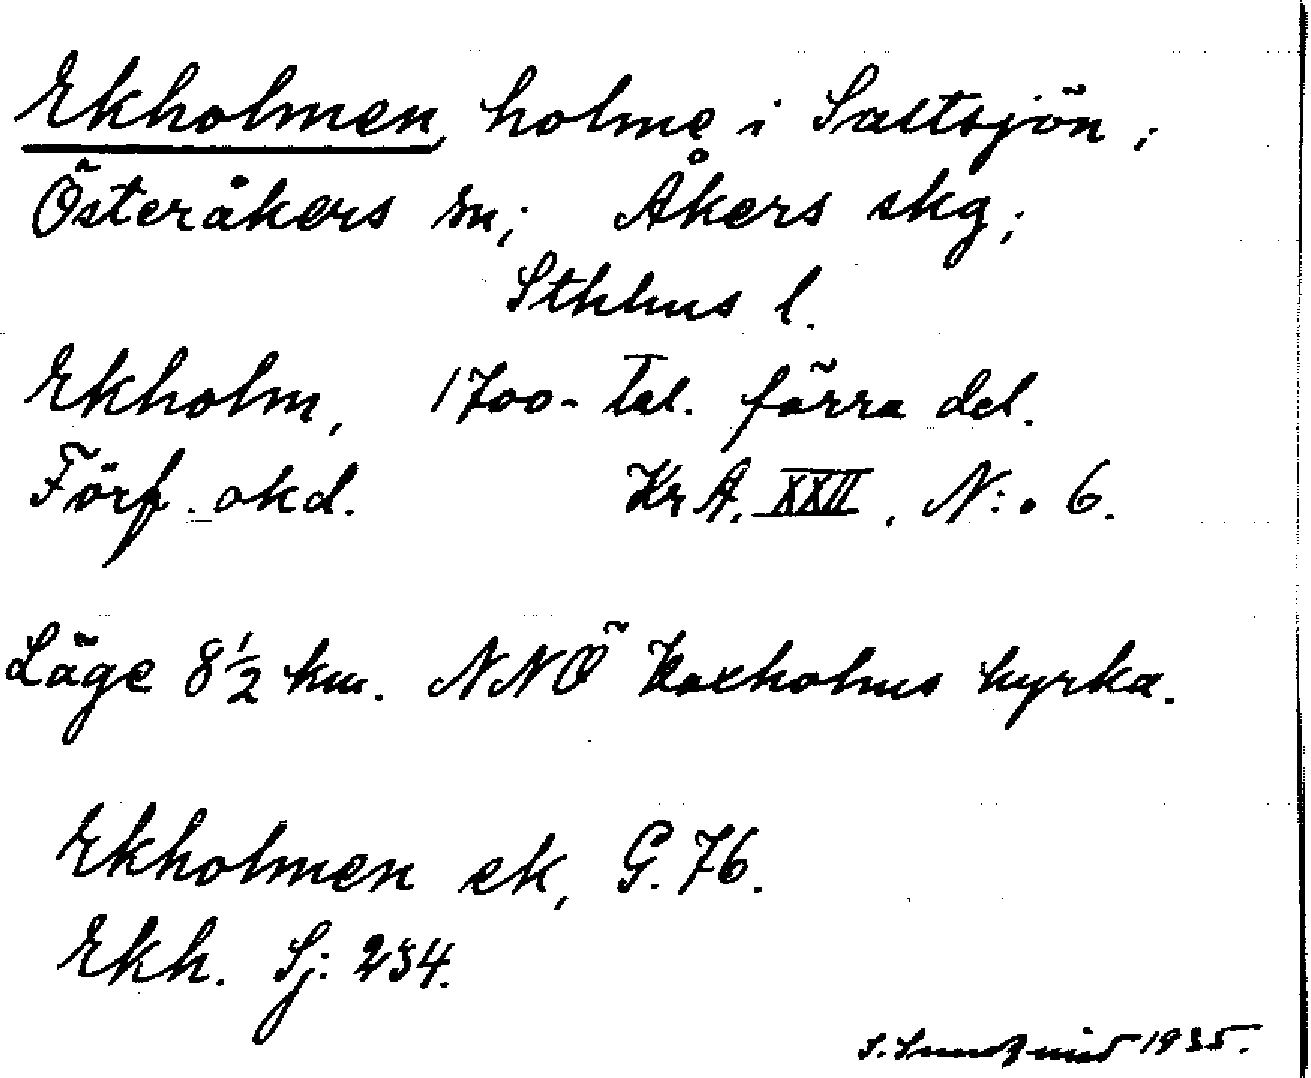 Ekholmen, holme i Saltsjön,
Österåkers sn; Åkers skg;
Sthlms l.
Ekholm, 1700-tal. förra del.
Förf. okd. KrA. XXII, N:o 6.
Läge 8 1/2 km. NNÖ Vaxholms kyrka.
Ekholmen ek, G. 76.
Ekh. Sj: 234.
S. 1935.